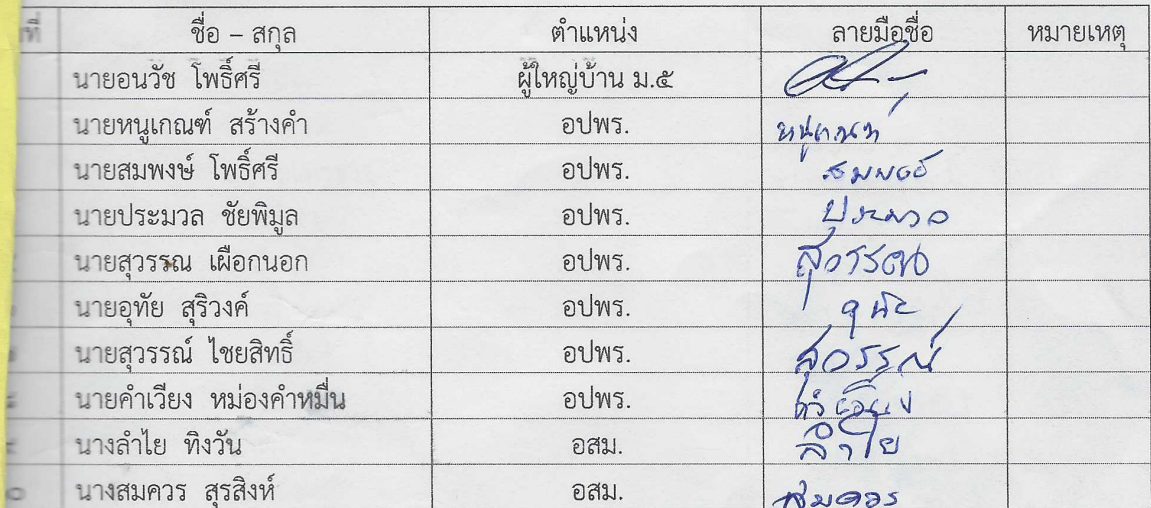 ที่ ชื่อ – สกุล ตำแหน่ง ลายมือชื่อ หมายเหตุ
นายอนวัช โพธิ์ศรี ผู้ใหญ่บ้าน ม.๕
นายหนูเกณฑ์ สร้างคำ อปพร. หนูเกณฑ์
นายสมพงษ์ โพธิ์ศรี อปพร. สมพงษ์
นายประมวล ชัยพิมูล อปพร. ประมวล
นายสุวรรณ เผือกนอก อปพร. สุวรรณ
นายอุทัย สุริวงค์ อปพร. อุทัย
นายสุวรรณ์ ไชยสิทธิ์ อปพร. สุวรรณ์
นายคำเวียง หม่องคำหมื่น อปพร. คำเวียง
นางลำไย ทิงวัน อสม. ลำไย
๐ นางสมควร สุรสิงห์ อสม. สมควร